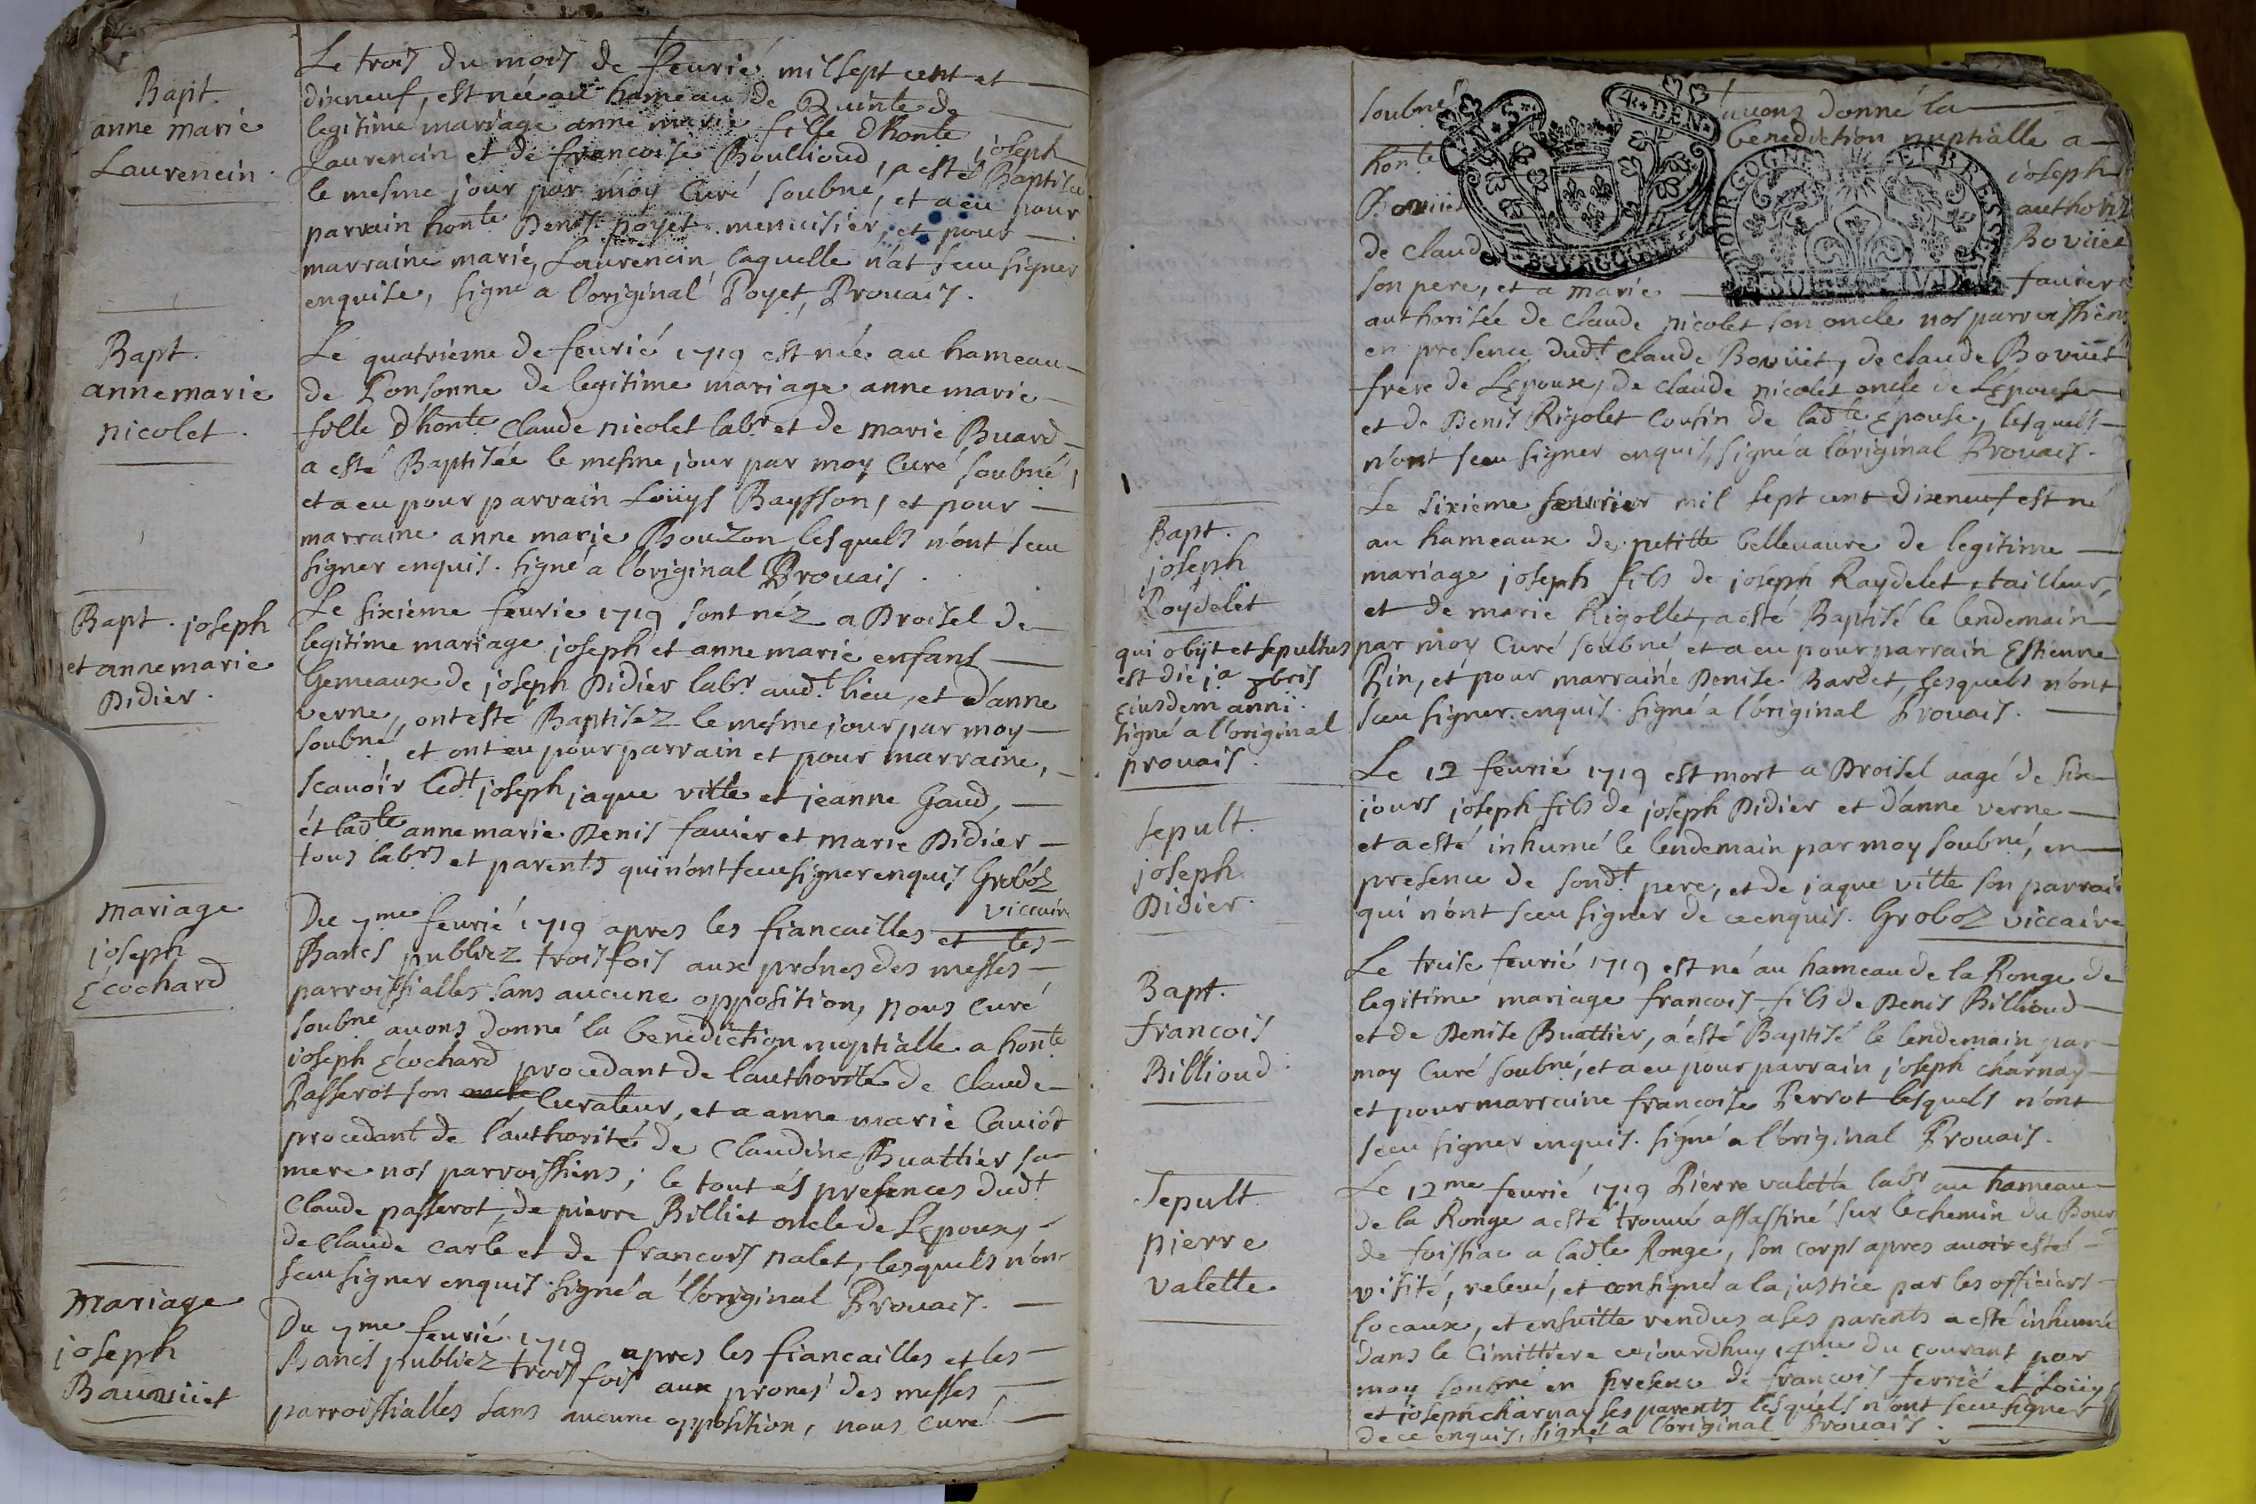 Bapt.
anne marie
Laurencin.
Le trois du mois de feurié mil sept cent et
dixneuf, est née au hameau de Quinte de
legitime mariage anne marie fille d'honte joseph
Laurencin et de francoise Boullioud, a esté Baptisée
le mesme jour par moy Curé soubné, et a eu pour
parrain honte Denis poyet menuisier, et pour
marraine marie Laurencin laquelle n'at sceu signer
enquise, signé a l'original Poyet, Prouais.
Bapt.
anne marie
nicolet.
Le quatrieme de feurié 1719 est née au hameau
de Ponsonne de legitime mariage anne marie
fille d'honte Claude nicolet labr et de marie Buard
a esté Baptisée le mesme jour par moy Curé soubné,
et a eu pour parrain Loüys Baysson, et pour
marraine anne marie Bouzon lesquels n'ont sceu
signer enquis. signé a l'original Prouais.
Bapt. joseph
et anne marie
Didier.
Le sixieme feurié 1719 sont néz a Droisel de
legitime mariage joseph et anne marie enfans
Gemeaux de joseph Didier labr audt lieu, et d'anne
verne, ont esté Baptisez le mesme jour par moy
soubné, et ont eu pour parrain et pour marraine,
scauoir ledt joseph jaque vitte et jeanne Gaud,
et ladte anne marie Denis fauier et marie Didier
tous labrs et parents qui n'ont sceu signer enquis Groboz
viccaire
mariage
joseph
Ecochard
Du 7me feurié 1719 apres les fiancailles et les
Bancs publiez trois fois aux prónes des messes
parroissialles sans aucune opposition, nous Curé
soubné auons donné la benediction nuptialle a honte
joseph Ecochard procedant de l'authorité de Claude
Passerot son oncle Curateur, et a anne marie Cauiot
procedant de l'authorité de Claudine Buattier sa
mere nos parroissiens; le tout és presences dudt
Claude passerot, de pierre Billiet oncle de L'Epoux,
de Claude Carle et de francois nalet, lesquels n'on
sceu signer enquis. signé a l'original Prouais.
mariage
joseph
Bauoüet
Du 7me feurié 1719 apres les fiancailles et les
Bancs publiez trois fois aux prones des messes
parroissialles sans aucune opposition, nous Curé
soubné auons donné la
benediction nuptialle a
honte joseph
Bouüet authoriz
de Claud Bouüet
son pere, et a marie fauiere
authorisée de Claude nicolet son oncle nos parroissiens
en presence dudt Claude Bouüet, de Claude Bouüet
frere de L'Epoux, de Claude nicolet oncle de L'Epouse
et de Denis Rigolet Cousin de ladte Epouse, lesquels
n'ont sceu signer enquis, signé a l'original Prouais.
Bapt.
joseph
Roydelet
qui obijt et sepultus
est die ja 8bris
ejusdem anni.
signé a l'original
prouais.
Le sixieme feurier mil sept cent dixneuf est né
au hameaux de petitte bellevaure de legitime
mariage joseph fils de joseph Raydelet, tailleur,
et de marie Rigollet, a esté Baptisé le lendemain
par moy Curé soubné et a eu pour parrain Estienne
Rin, et pour marraine Denise Bardet, lesquels n'ont
sceu signer enquis. signé a l'original Prouais.
sepult.
joseph
Didier.
Le 12 feurié 1719 est mort a Droisel aagé de six
jours joseph fils de joseph Didier et d'anne verne
et a esté inhumé le lendemain par moy soubné, en
presence de sondt pere, et de jaque vitte son parrain
qui n'ont sceu signer de ce enquis. Groboz viccaire
Bapt.
francois
Billioud.
Le treise feurié 1719 est né au hameau de la Ronge de
legitime mariage francois fils de Denis Billioud
et de Denise Buattier, a esté Baptisé le lendemain par
moy Curé soubné, et a eu pour parrain joseph charnay
et pour marraine francoise Perrot lesquels n'ont
sceu signer enquis. signé a l'original Prouais.
Sepult.
pierre
valette.
Le 12me feurié 1719 Pierre valette labr au hameau
de la Ronge a esté trouué assassiné sur le chemin du Bour
de foissiac a ladte Ronge, son corps apres auoir esté
visité, releué, et consigné a la justice par les officiers
locaux, et ensuitte rendus a ses parents a esté inhumé
dans le Cimittiere cejourdhuy 14me du courant par
moy soubné en presence de francois ferrié et Loüys
et joseph charnay ses parents lesquels n'ont sceu signer
de ce enquis, signé a l'original Prouais.
BOURGOGNE
BOURGOGNE ET BRESSE